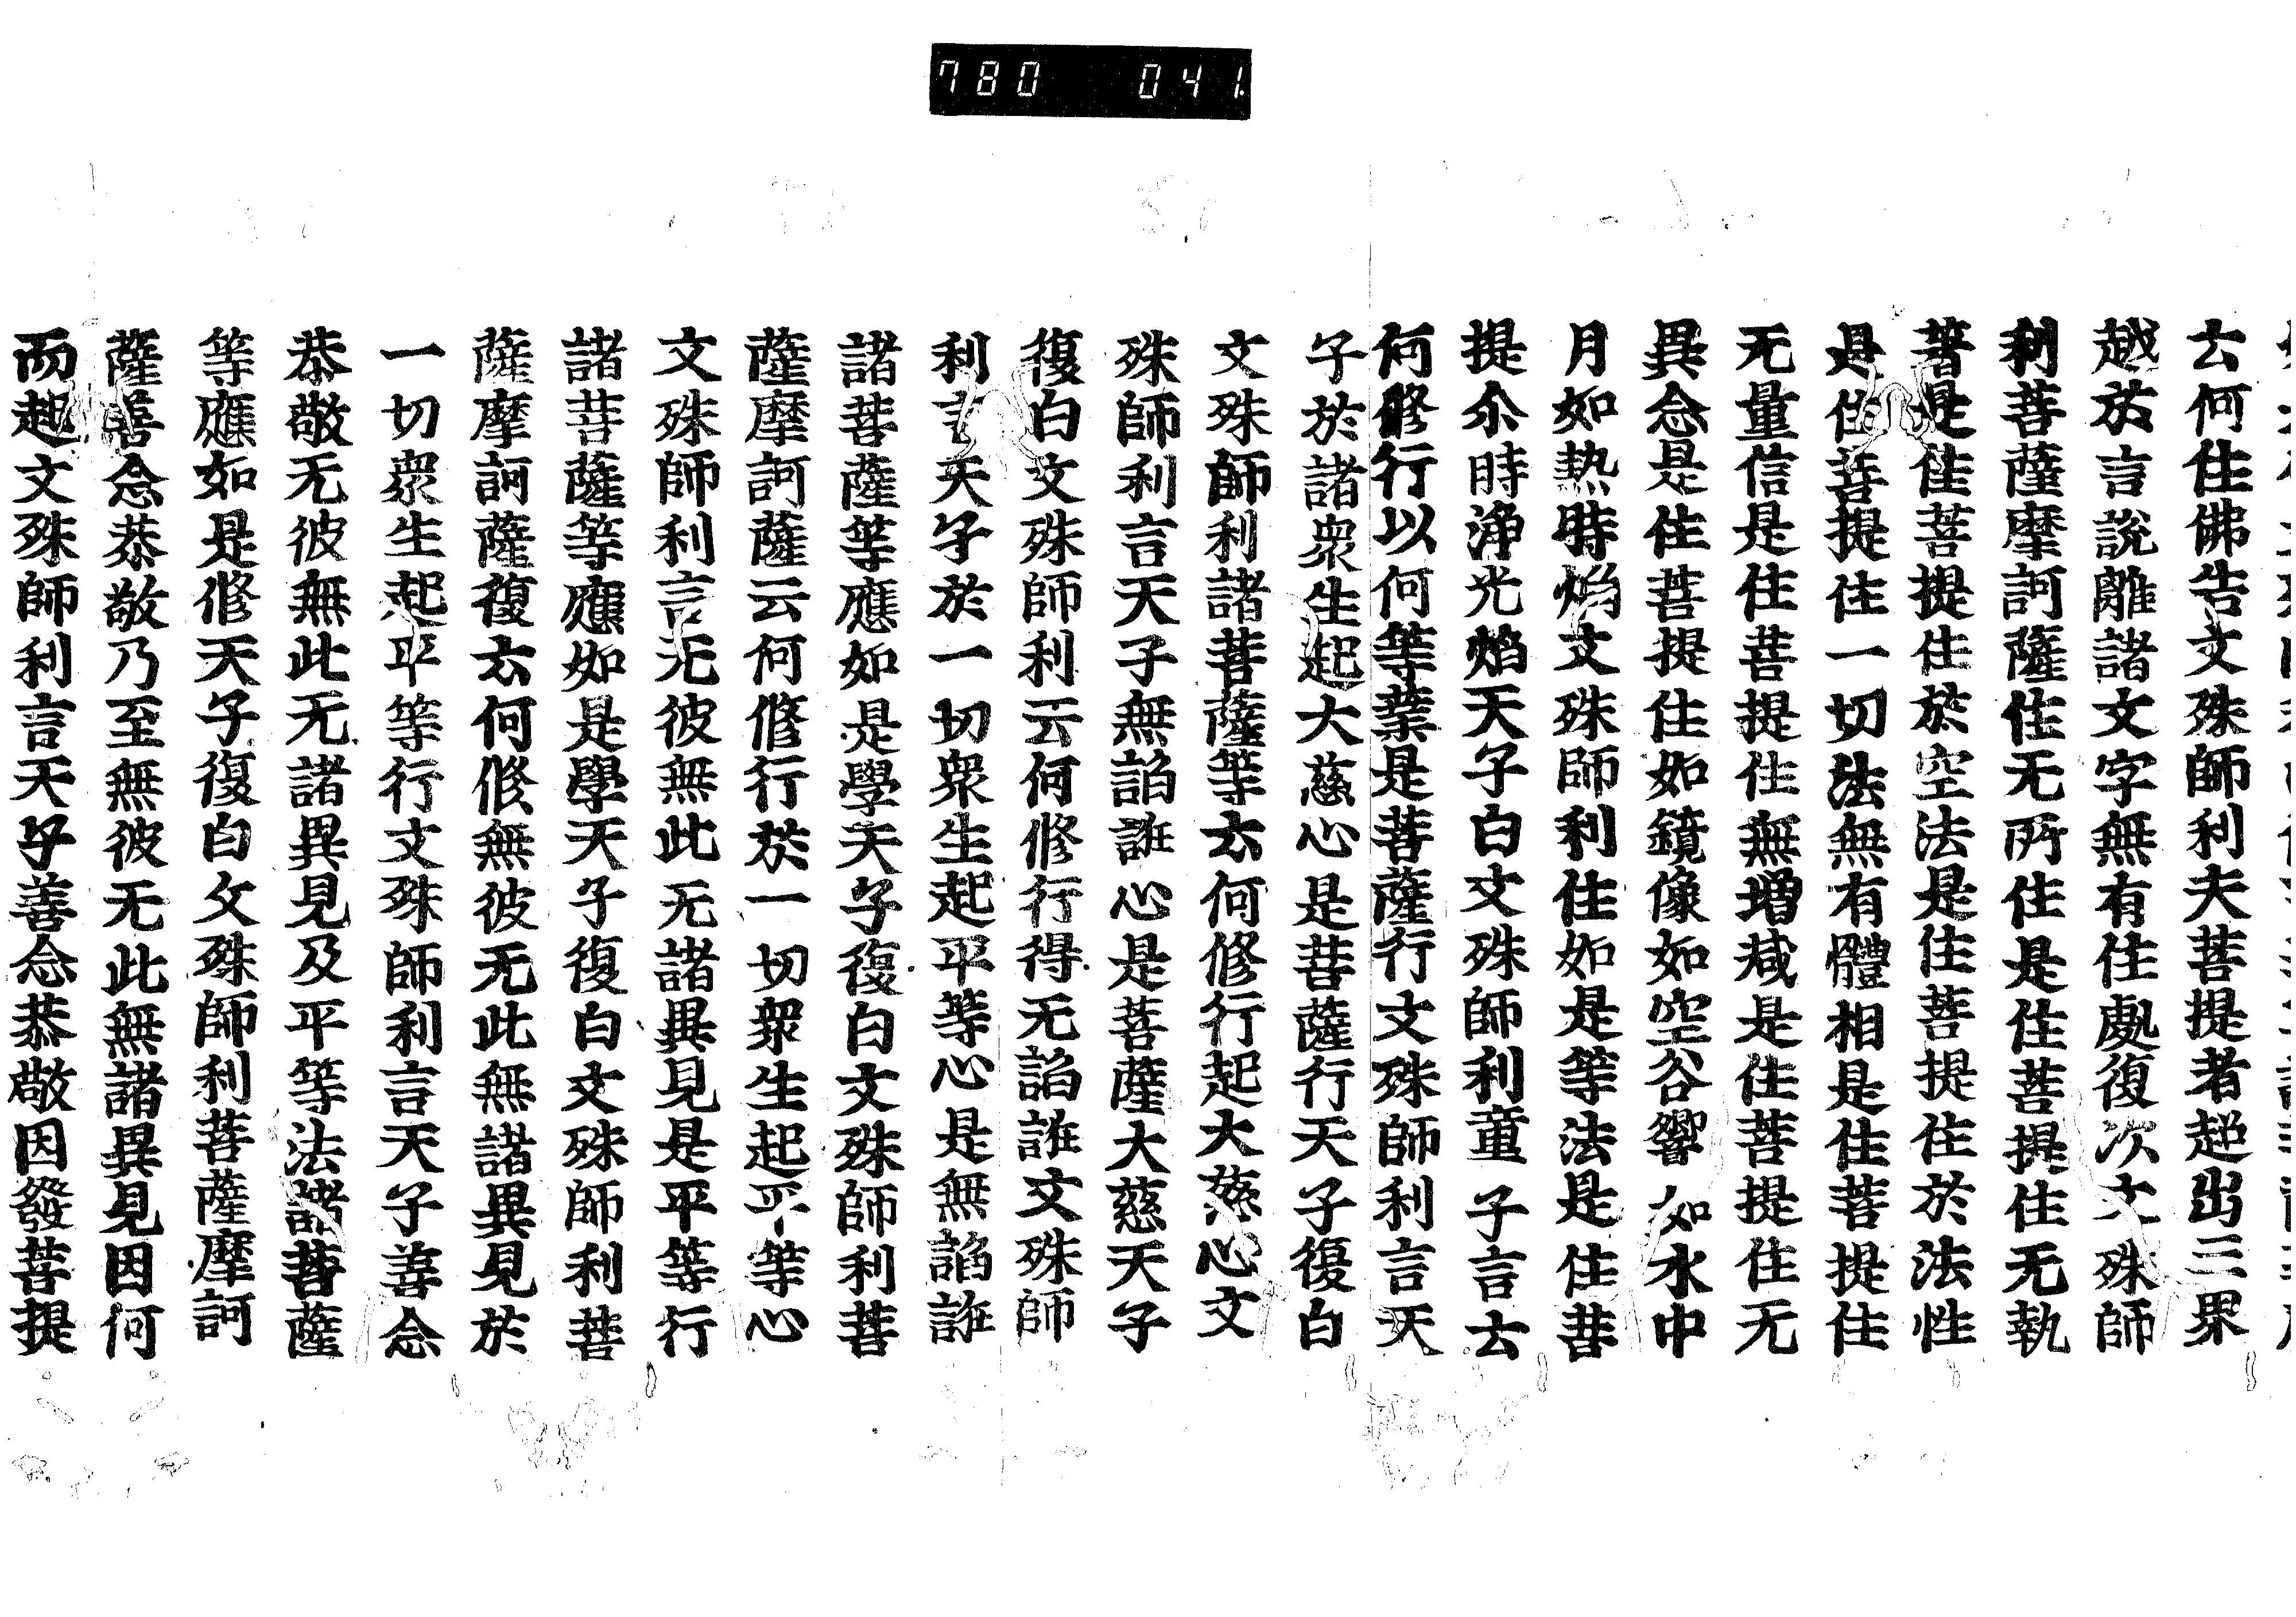 780 041
云何住佛告文殊師利夫菩提者超出三界
越於言說離諸文字無有住處復次文殊師
利菩薩摩訶薩住无所住是住菩提住无執
著是住菩提住於空法是住菩提住於法性
是住菩提住一切法無有體相是住菩提住
无量信是住菩提住無增减是住菩提住无
異念是住菩提住如鏡像如空谷響如水中
月如熱時焰文殊師利住如是等法是住菩
提尒時淨光焰天子白文殊師利童子言云
何修行以何等業是菩薩行文殊師利言天
子於諸衆生起大慈心是菩薩行天子復白
文殊師利諸菩薩等云何修行起大慈心文
殊師利言天子無諂誑心是菩薩大慈天子
復白文殊師利云何修行得无諂誑文殊師
利言天子於一切衆生起平等心是無諂誑
諸菩薩等應如是學天子復白文殊師利菩
薩摩訶薩云何修行於一切衆生起平等心
文殊師利言无彼無此无諸異見是平等行
諸菩薩等應如是學天子復白文殊師利菩
薩摩訶薩復云何修無彼无此無諸異見於
一切衆生起平等行文殊師利言天子善念
恭敬无彼無此无諸異見及平等法諸菩薩
等應如是修天子復白文殊師利菩薩摩訶
薩善念恭敬乃至無彼无此無諸異見因何
而起文殊師利言天子善念恭敬因發菩提